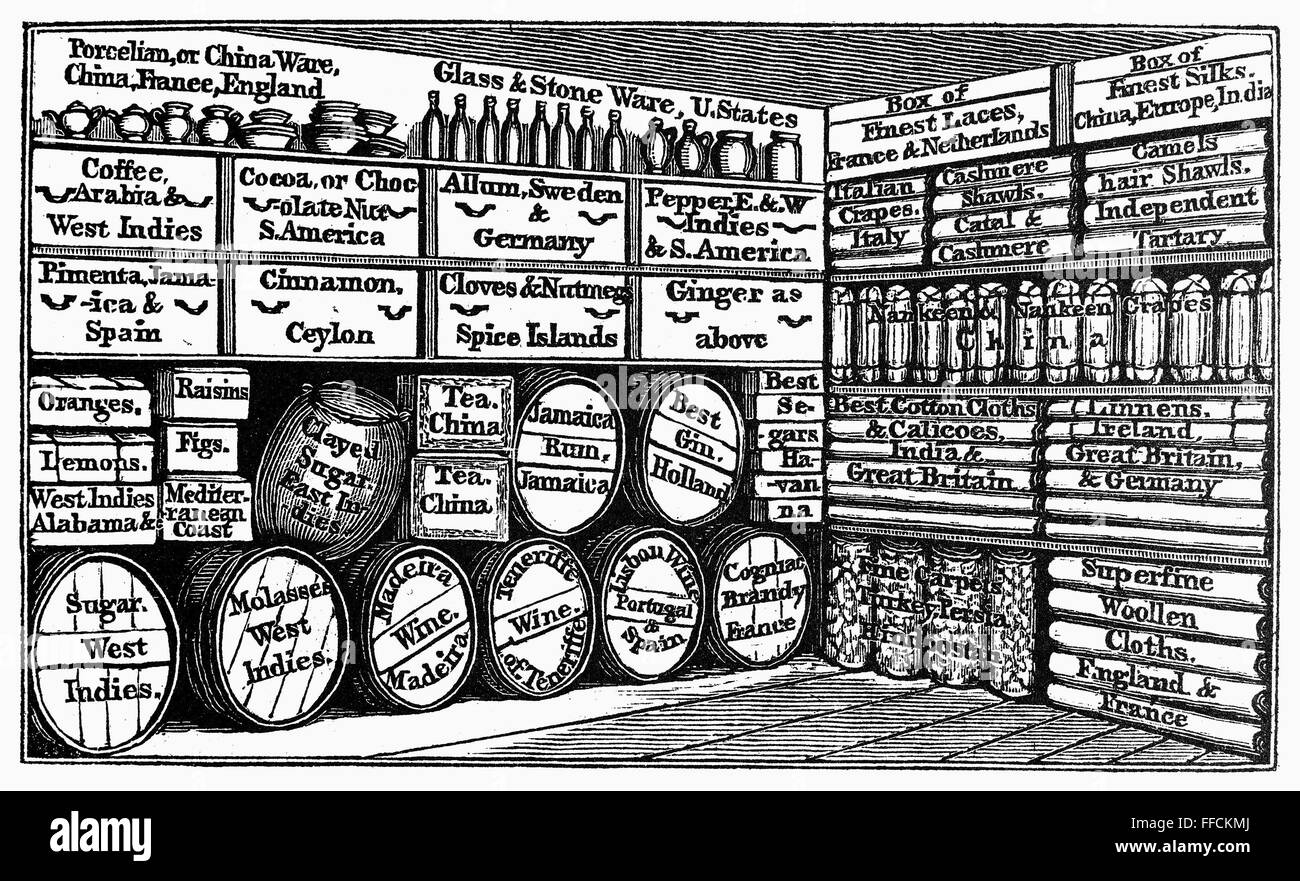 Porcelian, or China Ware,
China, France, England
Glass & Stone Ware, U. States
Coffee,
Arabia &
West Indies
Cocoa, or Choc-
olate Nut
S. America
Allum, Sweden
&
Germany
Pepper E. & W
Indies
& S. America
Pimenta, Jama-
-ica &
Spain
Cinnamon,
Ceylon
Cloves & Nutmegs
Spice Islands
Ginger as
above
Oranges.
Lemons.
West Indies
Alabama &
Raisins
Figs.
Mediter-
ranean
Coast
Clayed
Sugar.
East In
-dies.
Tea.
China
Tea.
China
Jamaica
Rum,
Jamaica
Best
Gin.
Holland
Best
Se-
-gars
Ha-
-van
na
Sugar.
West
Indies.
Molasses
West
Indies.
Madeira
Wine.
Madeira
Teneriffe
Wine.
of Teneriffe
Lisbon Wine
Portugal
&
Spain
Cogniac
Brandy
France
Box of
Finest Laces,
France & Netherlands
Box of
Finest Silks.
China, Europe, India
Italian
Crapes.
Italy
Cashmere
Shawls.
Catal &
Cashmere
Camels
hair Shawls.
Independent
Tartary
Nankeen & Nankeen Crapes
China
Best Cotton Cloths
& Calicoes,
India &
Great Britain
Linnens.
Ireland,
Great Britain,
& Germany
Fine Carpets
Turkey, Persia
Hindostan
Superfine
Woollen
Cloths.
England &
France
alamy
Image ID: FFCKMJ
www.alamy.com